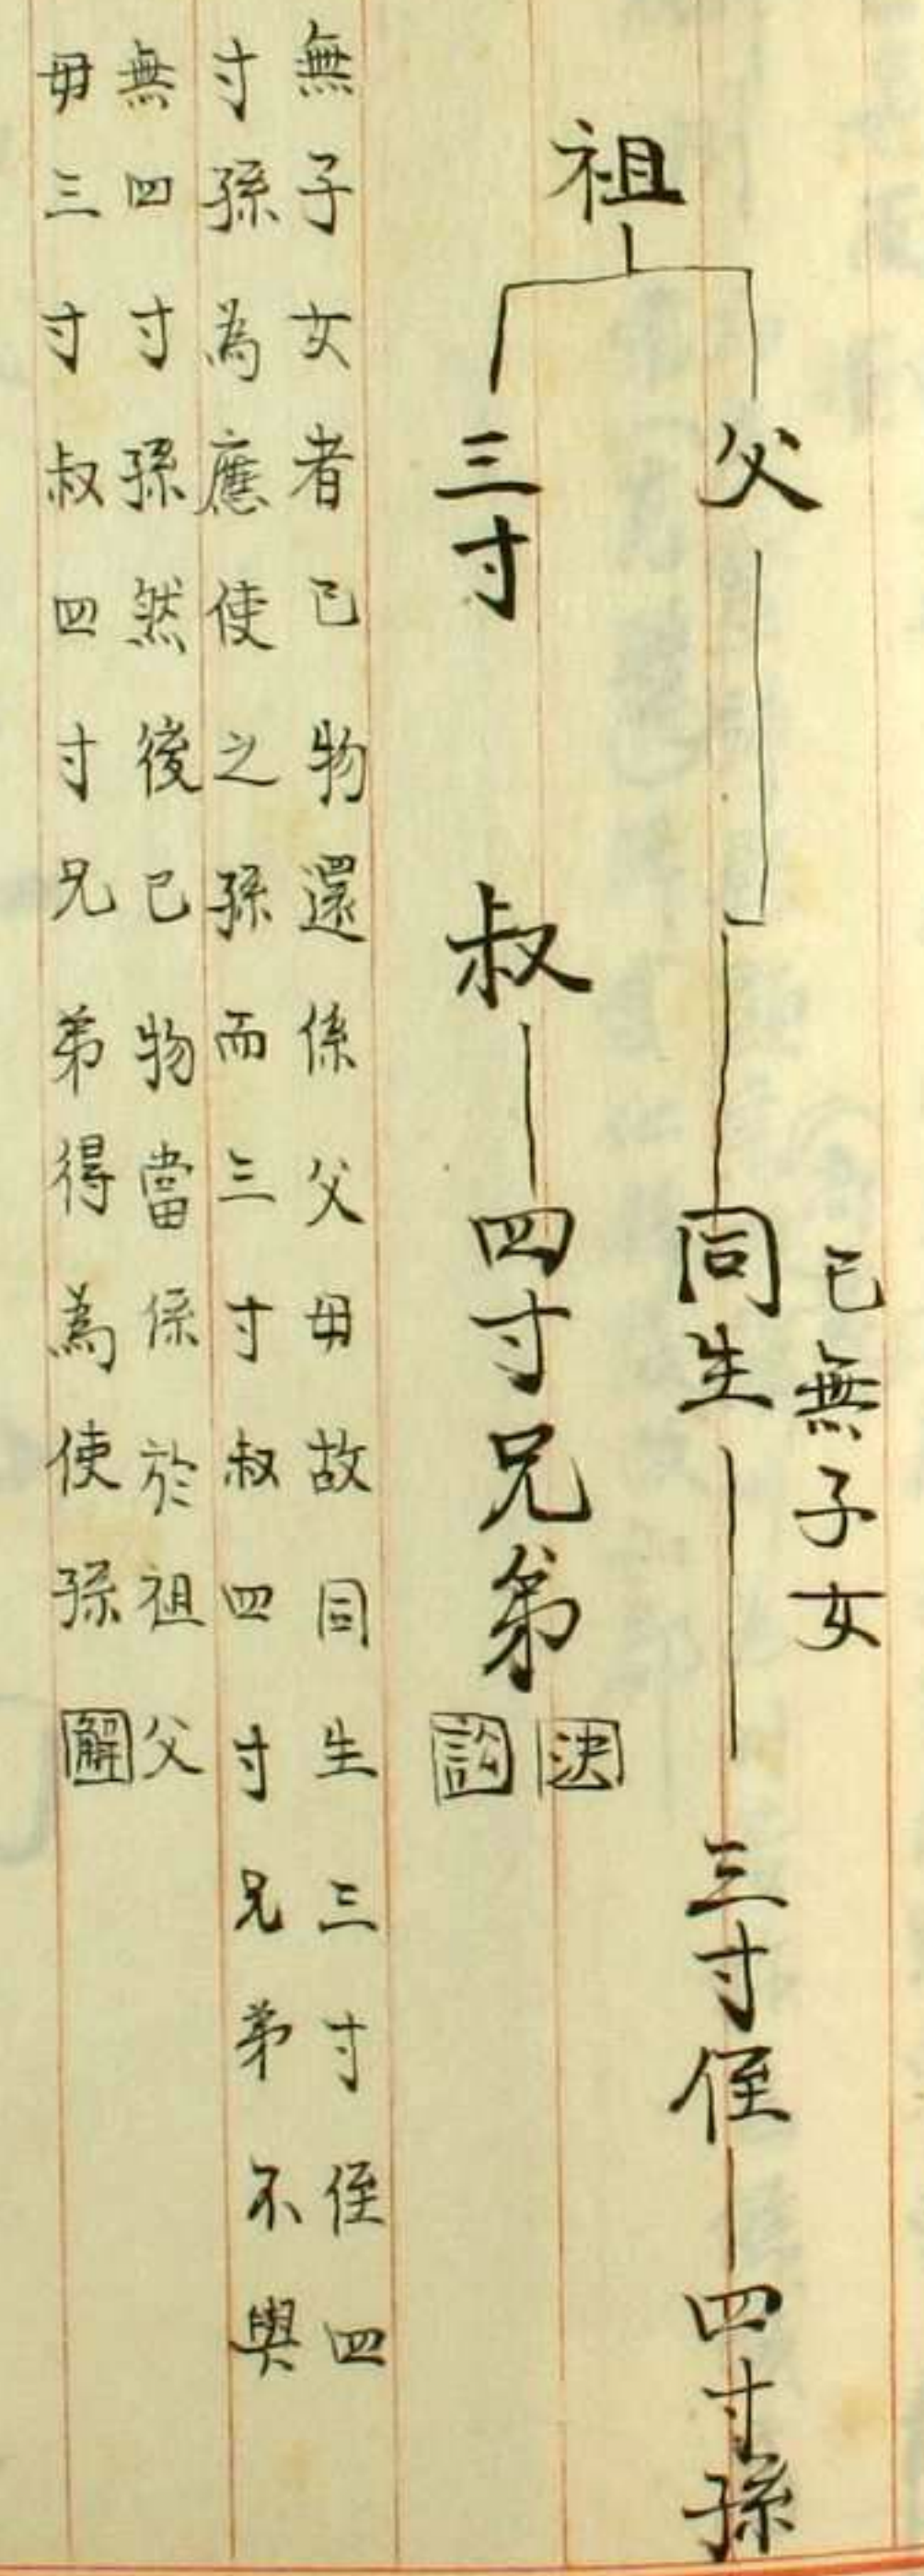 己無子女
祖
父
同生
三寸侄
四寸孫
三寸
叔
四寸兄弟
決
訟
無子女者己物還係父母故同生三寸侄四
寸孫為應使之孫而三寸叔四寸兄弟不與
無四寸孫然後己物當係於祖父
母三寸叔四寸兄弟得為使孫
解